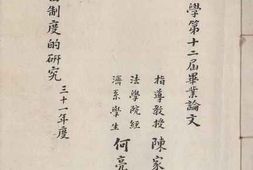 學第十二屆畢業論文
指導教授 陳家
法學院經
濟系學生 何亮
制度的研究
三十一年度